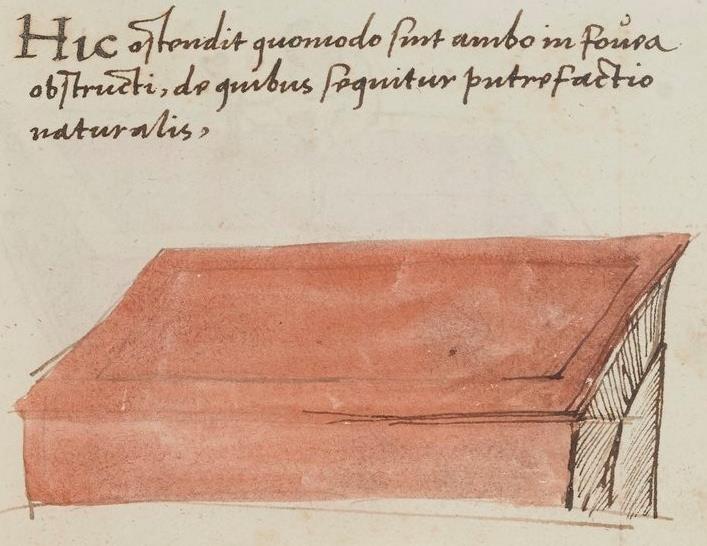 Hic ostendit quomodo sint ambo in fovea
obstructi, de quibus sequitur putrefactio
naturalis,